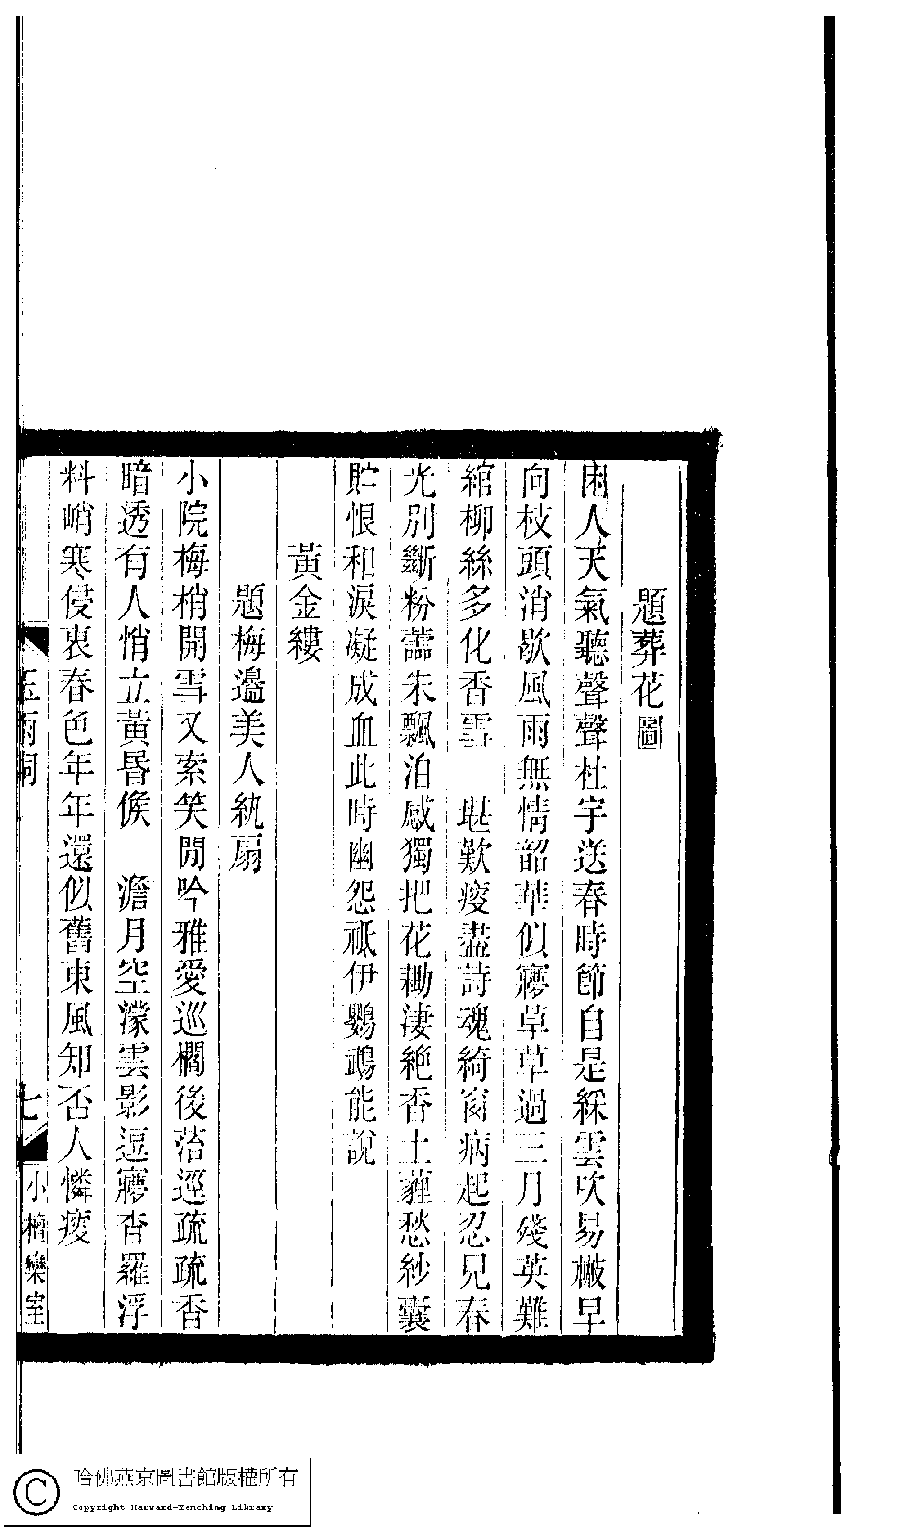 題葬花圖
困人天氣聽聲聲杜宇送春時節自是綵雲吹易㪚早
向枝頭消歇風雨無情韶華似㝱草草過三月殘英難
綰柳絲多化香雪　堪歎瘦盡詩魂綺窗病起忍見春
光別斷粉蕊朱飄泊感獨把花鋤淒絕香土薶愁紗囊
貯恨和淚凝成血此時幽怨祇伊鸚鵡能說
黃金縷
題梅邊美人紈扇
小院梅梢開雪又索笑閒吟雅愛巡欄後苔逕疏疏香
暗透有人悄立黃昏候　澹月空濛雲影逗㝱杳羅浮
料峭寒侵衷春色年年還似舊東風知否人憐瘦
玉雨詞
七
小檀欒室
哈佛燕京圖書館版權所有
Copyright Harvard-Yenching Library